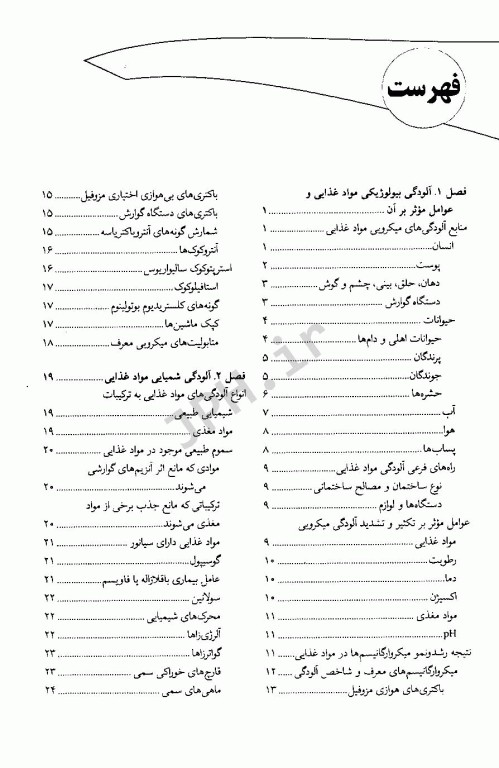 فهرست
فصل ۱. آلودگی بیولوژیکی مواد غذایی و
عوامل مؤثر بر آن ..... ۱
منابع آلودگی‌های میکروبی مواد غذایی ..... ۱
انسان ..... ۱
پوست ..... ۲
دهان، حلق، بینی، چشم و گوش ..... ۳
دستگاه گوارش ..... ۳
حیوانات ..... ۴
حیوانات اهلی و دام‌ها ..... ۴
پرندگان ..... ۵
جوندگان ..... ۵
حشره‌ها ..... ۶
آب ..... ۷
هوا ..... ۸
پساب‌ها ..... ۸
راه‌های فرعی آلودگی مواد غذایی ..... ۹
نوع ساختمان و مصالح ساختمانی ..... ۹
دستگاه‌ها و لوازم ..... ۹
عوامل مؤثر بر تکثیر و تشدید آلودگی میکروبی
مواد غذایی ..... ۹
رطوبت ..... ۱۰
دما ..... ۱۰
اکسیژن ..... ۱۰
مواد مغذی ..... ۱۱
pH ..... ۱۱
نتیجه رشدونمو میکروارگانیسم‌ها در مواد غذایی ..... ۱۱
میکروارگانیسم‌های معرف و شاخص آلودگی ..... ۱۲
باکتری‌های هوازی مزوفیل ..... ۱۳
باکتری‌های بی‌هوازی اختیاری مزوفیل ..... ۱۵
باکتری‌های دستگاه گوارش ..... ۱۵
شمارش گونه‌های آنتروباکتریاسه ..... ۱۵
آنتروکوک‌ها ..... ۱۶
استرپتوکوک سالیواریوس ..... ۱۶
استافیلوکوک ..... ۱۷
گونه‌های کلستریدیوم بوتولینوم ..... ۱۷
کپک ماشین‌ها ..... ۱۷
متابولیت‌های میکروبی معرف ..... ۱۸
فصل ۲. آلودگی شیمیایی مواد غذایی ..... ۱۹
انواع آلودگی‌های مواد غذایی به ترکیبات
شیمیایی طبیعی ..... ۱۹
مواد مغذی ..... ۱۹
سموم طبیعی موجود در مواد غذایی ..... ۲۰
موادی که مانع اثر آنزیم‌های گوارشی
می‌شوند ..... ۲۰
ترکیباتی که مانع جذب برخی از مواد
مغذی می‌شوند ..... ۲۰
مواد غذایی دارای سیانور ..... ۲۱
گوسیپول ..... ۲۱
عامل بیماری باقلازاله یا فاویسم ..... ۲۱
سولانین ..... ۲۲
محرک‌های شیمیایی ..... ۲۲
آلرژی‌زاها ..... ۲۲
گواترزاها ..... ۲۳
قارچ‌های خوراکی سمی ..... ۲۳
ماهی‌های سمی ..... ۲۴
JPH.ir